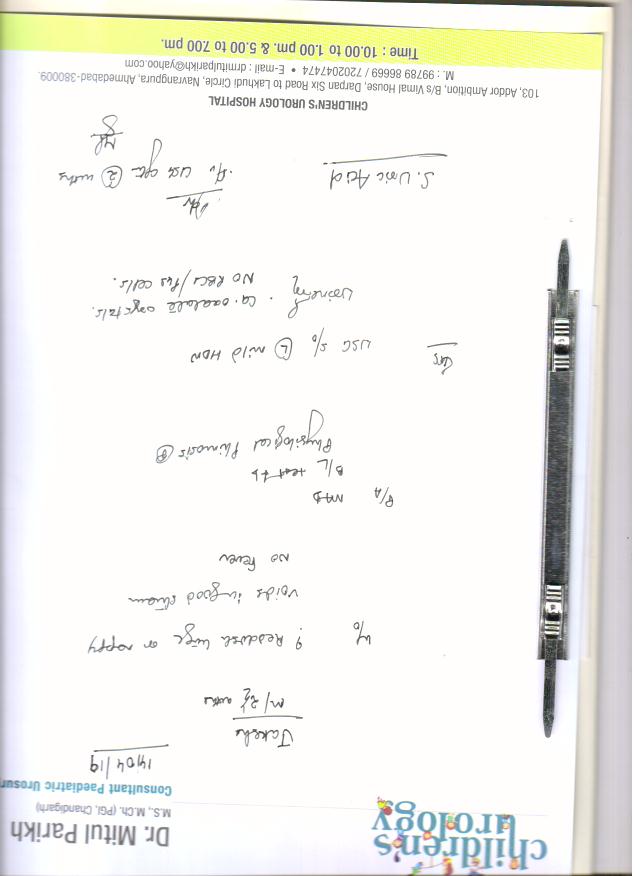 children's
urology
Dr. Mitul Parikh
M.S., M.Ch. (PGI, Chandigarh)
Consultant Paediatric Urosur
14/04/19
M/ 2½
H/o ? Reddish on nappy
voids in good stream
No fever
P/A NAD
B/L
Physiological Phimosis
USG S/o (L) mild HDN
Urine
Ca. oxalate crystals.
NO RBCs/Pus cells.
Adv
S. Uric Acid
USG (2)
CHILDREN'S UROLOGY HOSPITAL
103, Addor Ambition, B/s Vimal House, Darpan Six Road to Lakhudi Circle, Navrangpura, Ahmedabad-380009.
M. : 99789 86669 / 7202047474 • E-mail : drmitulparikh@yahoo.com
Time : 10.00 to 1.00 pm. & 5.00 to 7.00 pm.